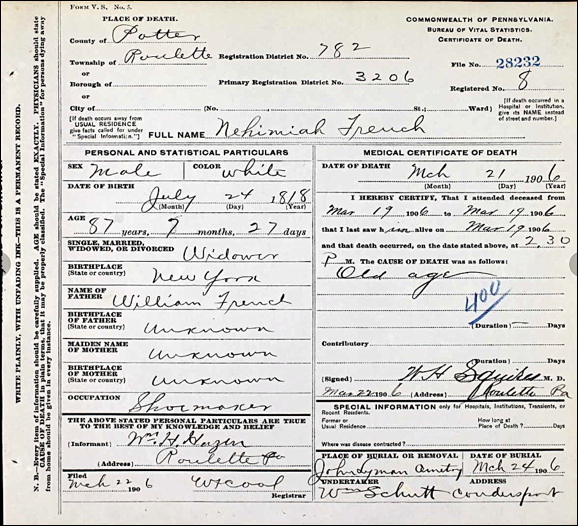 FORM V. S. No. 5.
PLACE OF DEATH.
County of Potter
Township of Roulette Registration District No. 782
or
Borough of Primary Registration District No. 3206
or
City of (No. St.; Ward)
COMMONWEALTH OF PENNSYLVANIA.
BUREAU OF VITAL STATISTICS.
CERTIFICATE OF DEATH.
File No. 28232
Registered No. 8
[If death occurred in a Hospital or Institution, give its NAME instead of street and number.]
[If death occurs away from USUAL RESIDENCE give facts called for under "Special Information."]
FULL NAME Nehimiah French
PERSONAL AND STATISTICAL PARTICULARS
SEX Male COLOR White
DATE OF BIRTH
July 24 1818
(Month) (Day) (Year)
AGE
87 years, 7 months, 27 days
SINGLE, MARRIED,
WIDOWED, OR DIVORCED Widower
BIRTHPLACE
(State or country) New York
NAME OF
FATHER William French
BIRTHPLACE
OF FATHER
(State or country) Unknown
MAIDEN NAME
OF MOTHER Unknown
BIRTHPLACE
OF MOTHER
(State or country) Unknown
OCCUPATION
Shoemaker
THE ABOVE STATED PERSONAL PARTICULARS ARE TRUE
TO THE BEST OF MY KNOWLEDGE AND BELIEF
(Informant) Wm. H. Hazen
(Address) Roulette Pa
Filed
Mch 22 1906
Registrar
MEDICAL CERTIFICATE OF DEATH
DATE OF DEATH
Mch 21 1906
(Month) (Day) (Year)
I HEREBY CERTIFY, That I attended deceased from
Mar 19 1906 to Mar 19 1906
that I last saw him alive on Mar 19 1906
and that death occurred, on the date stated above, at 2.30
P M. The CAUSE OF DEATH was as follows:
Old age
400
(Duration) Days
Contributory
(Duration) Days
(Signed) W H Squires M. D.
Mar 22 1906 (Address) Roulette Pa
SPECIAL INFORMATION only for Hospitals, Institutions, Transients, or Recent Residents.
Former or
Usual Residence
How long at
Place of Death? Days
Where was disease contracted?
PLACE OF BURIAL OR REMOVAL DATE OF BURIAL
John Lyman Mch 24 1906
UNDERTAKER ADDRESS
Wm Schutt Coudersport
WRITE PLAINLY, WITH UNFADING INK—THIS IS A PERMANENT RECORD.
N. B.—Every item of information should be carefully supplied. AGE should be stated EXACTLY. PHYSICIANS should state
CAUSE OF DEATH in plain terms, that it may be properly classified. The "Special Information" for persons dying away
from home should be given in every instance.